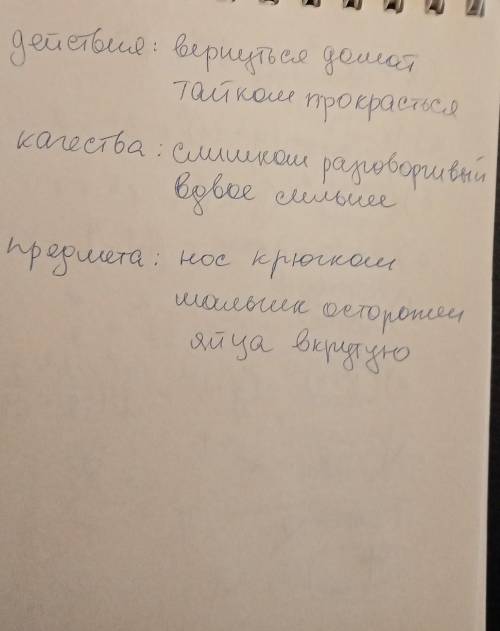 действия: вернуться домой
тайком прокрасться
качества: слишком разговорчивый
вдвое сильнее
предмета: нос крючком
мальчик осторожен
яйца вкрутую